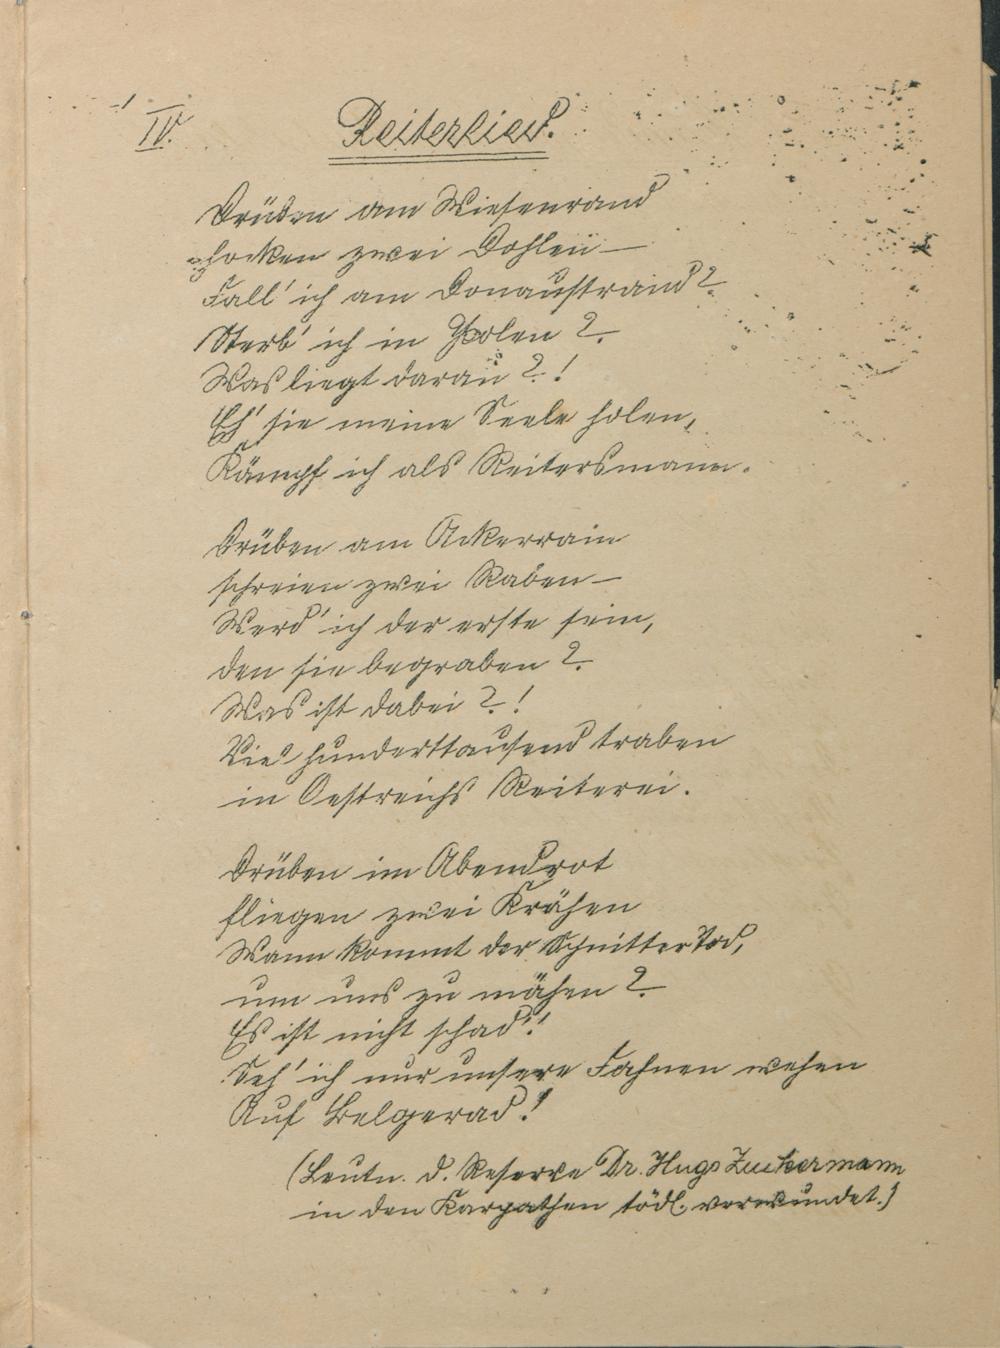 IV.
Reiterlied.
Drüben am Wiesenrand
hocken zwei Dohlen —
Fall' ich am Donaustrand?
Sterb' ich in Polen?
Was liegt daran?!
Eh' sie meine Seele holen,
Kämpf ich als Reitersmann.
Drüben am Ackerrain
schreien zwei Raben —
Werd' ich der erste sein,
den sie begraben?
Was ist dabei?!
Viel hunderttausend traben
in Oestreichs Reiterei.
Drüben im Abendrot
fliegen zwei Krähen
Wann kommt der Schnitter Tod,
um uns zu mähen?
Es ist nicht schad!
Seh' ich nur unsere Fahnen wehen
Auf Belgerad!
(Leutn. d. Reserve Dr. Hugo Zuckermann
in den Karpathen tödl. verwundet.)